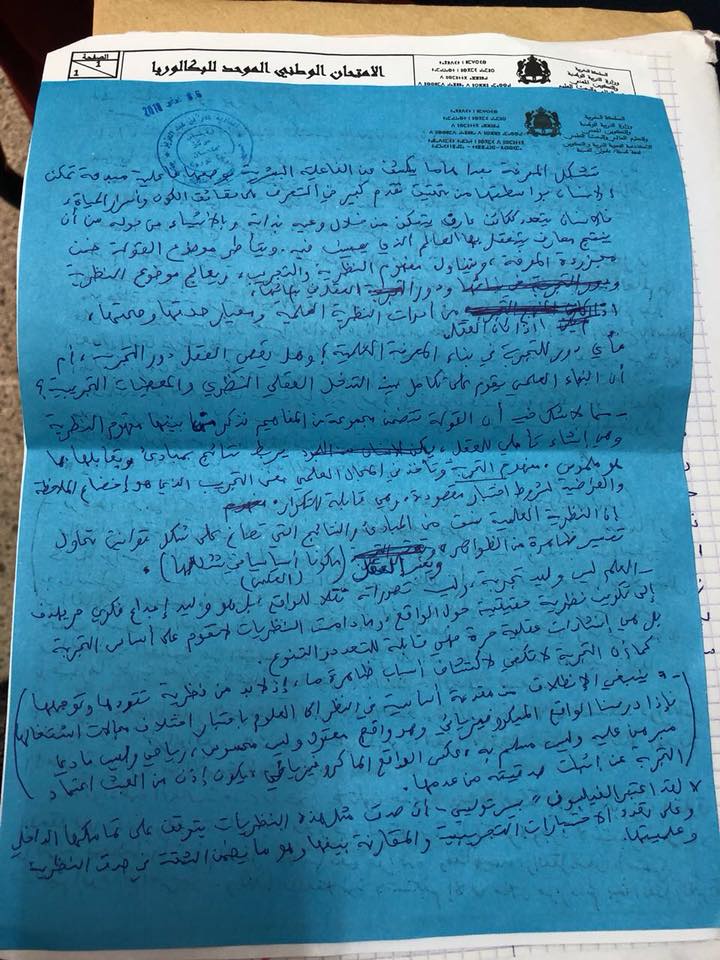 الصفحة
1
الامتحان الوطني الموحد للبكالوريا
المملكة المغربية
وزارة التربية الوطنية
والتكوين المهني
تشكل المعرفة بعدا هاما يكشف عن الفاعلية البشرية بوصفها فاعلية مبدعة تمكن
الإنسان بواسطتها من تحقيق تقدم كبير في التعرف على حقائق الكون وأسرار الحياة،
فالإنسان يتحدد ككائن عارف يتمكن من خلال وعيه بذاته وبالأشياء من حوله من أن
ينتج معارف يتعقل بها العالم الذي يعيش فيه. ويتأطر موضوع القولة ضمن
مجزوءة المعرفة، ويتناول مفهوم النظرية والتجريب، ويعالج موضوع النظرية
ودور العقل في بنائها،
إذا كان العقل من أدوات النظرية العلمية ومعيار صدقها وصحتها،
فأي دور للتجربة في بناء المعرفة العلمية؟ وهل يقصي العقل دور التجربة، أم
أن البناء العلمي يقوم على تكامل بين التدخل العقلي النظري والمعطيات التجريبية؟
- مما لا شك فيه أن القولة تتضمن مجموعة من المفاهيم نذكر من بينها مفهوم النظرية
وهي إنشاء تأملي للعقل، يربط نتائج بمبادئ ويقابلها بما
هو ملموس، مفهوم التجربة وتأخذ في المجال العلمي معنى التجريب الذي هو إخضاع الملاحظة
والفرضية لشروط اختبار مقصودة، وهي قابلة للتكرار.
إن النظرية العلمية نسق من المبادئ والنتائج التي تصاغ على شكل قوانين تحاول
تفسير ظاهرة من الظواهر، ويعتبر العقل (العلمي) (مكونا أساسيا في تشكلها).
- العلم ليس وليد تجربة، وليست تصوراته نقلا للواقع، بل هو وليد إبداع فكري حر يهدف
إلى تكوين نظرية حقيقية حول الواقع، وما دامت النظريات لا تقوم على أساس التجربة
بل هي إنشاءات عقلية حرة فهي قابلة للتعدد والتنوع.
كما أن التجربة لا تكفي لاكتشاف أسباب ظاهرة ما، إذ لابد من نظرية تقودها وتوجهها
- ينبغي الإنطلاق من مقدمة أساسية في النظر إلى العلوم باعتبار اختلاف مجالات اشتغالها
فإذا درسنا الواقع الميكروفيزيائي وهو واقع معقول وليس محسوس، رياضي وليس ماديا
مبرهن عليه وليس مسلم به، عكس الواقع الماكروفيزيائي، يكون إذن من العبث اعتماد
التجربة عن إثبات صدقيته من عدمها.
* لقد اعتبر الفيلسوف "بيير تويلي" أن صدق مثل هذه النظريات يتوقف على تماسكها الداخلي
وعلى تعدد الاختبارات التجريبية والمقارنة بينها وهو ما يضمن الثقة في صدق النظرية
وعلميتها.